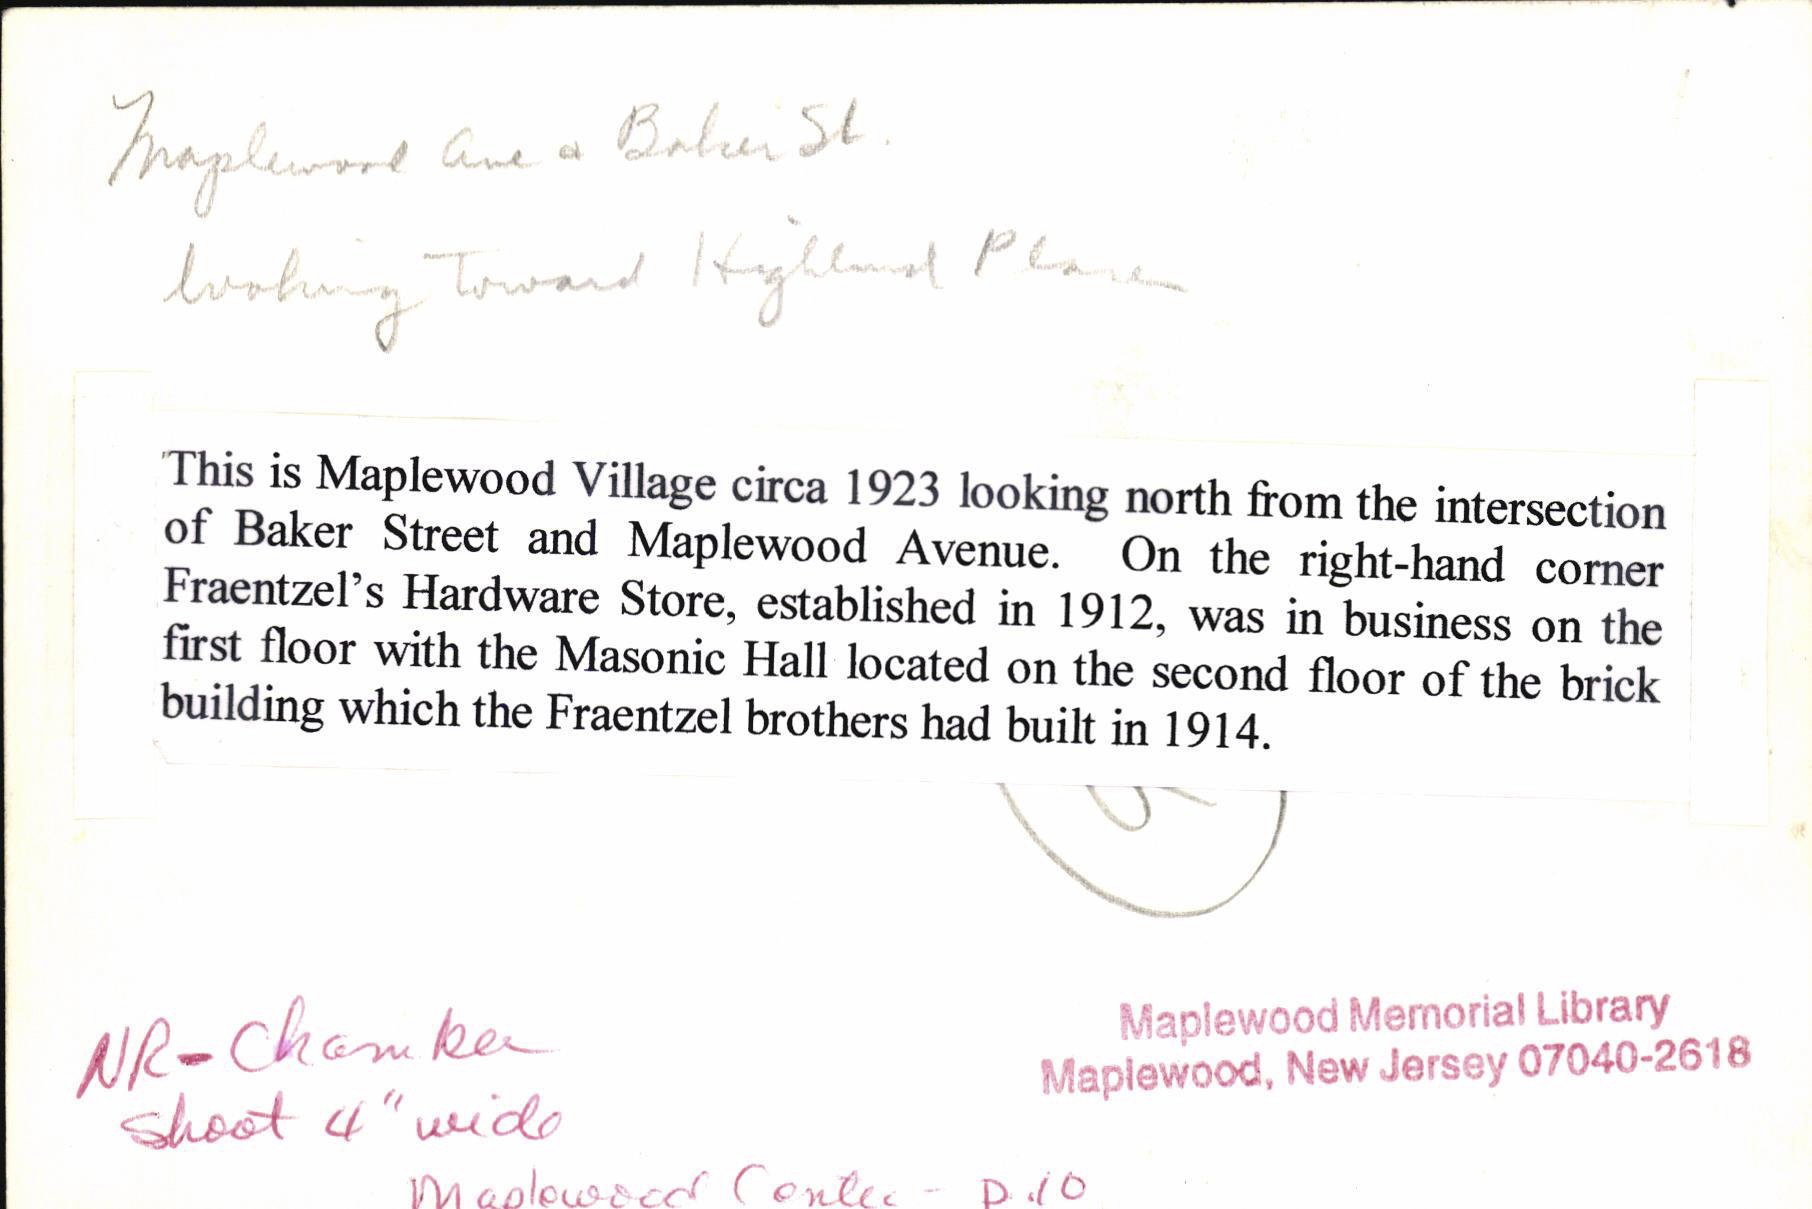 Maplewood Ave & Baker St.
looking Toward Highland Place
This is Maplewood Village circa 1923 looking north from the intersection
of Baker Street and Maplewood Avenue. On the right-hand corner
Fraentzel's Hardware Store, established in 1912, was in business on the
first floor with the Masonic Hall located on the second floor of the brick
building which the Fraentzel brothers had built in 1914.
NR-Chamber
shoot 4" wide
Maplewood Center - p.10
Maplewood Memorial Library
Maplewood, New Jersey 07040-2618